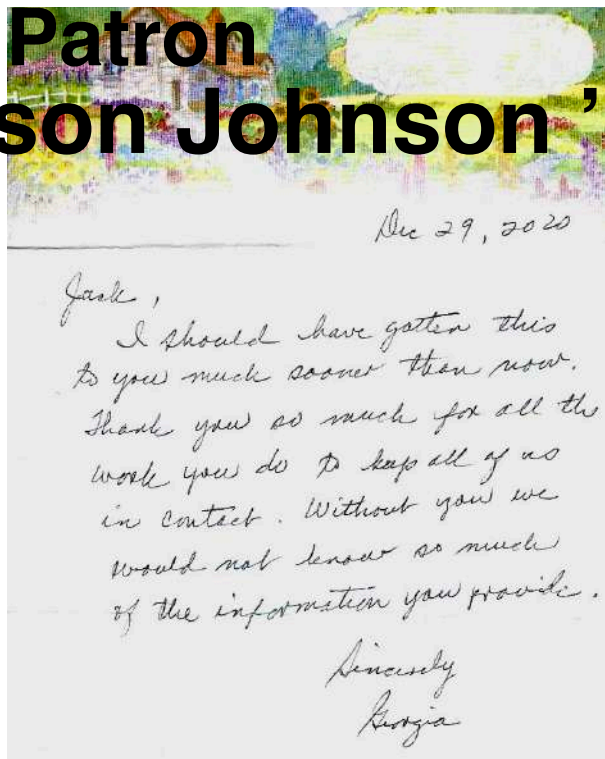 Patron
son Johnson ’
Dec 29, 2020
Jack,
I should have gotten this
to you much sooner than now.
Thank you so much for all the
work you do to keep all of us
in contact. Without you we
would not know so much
of the information you provide.
Sincerely
Georgia